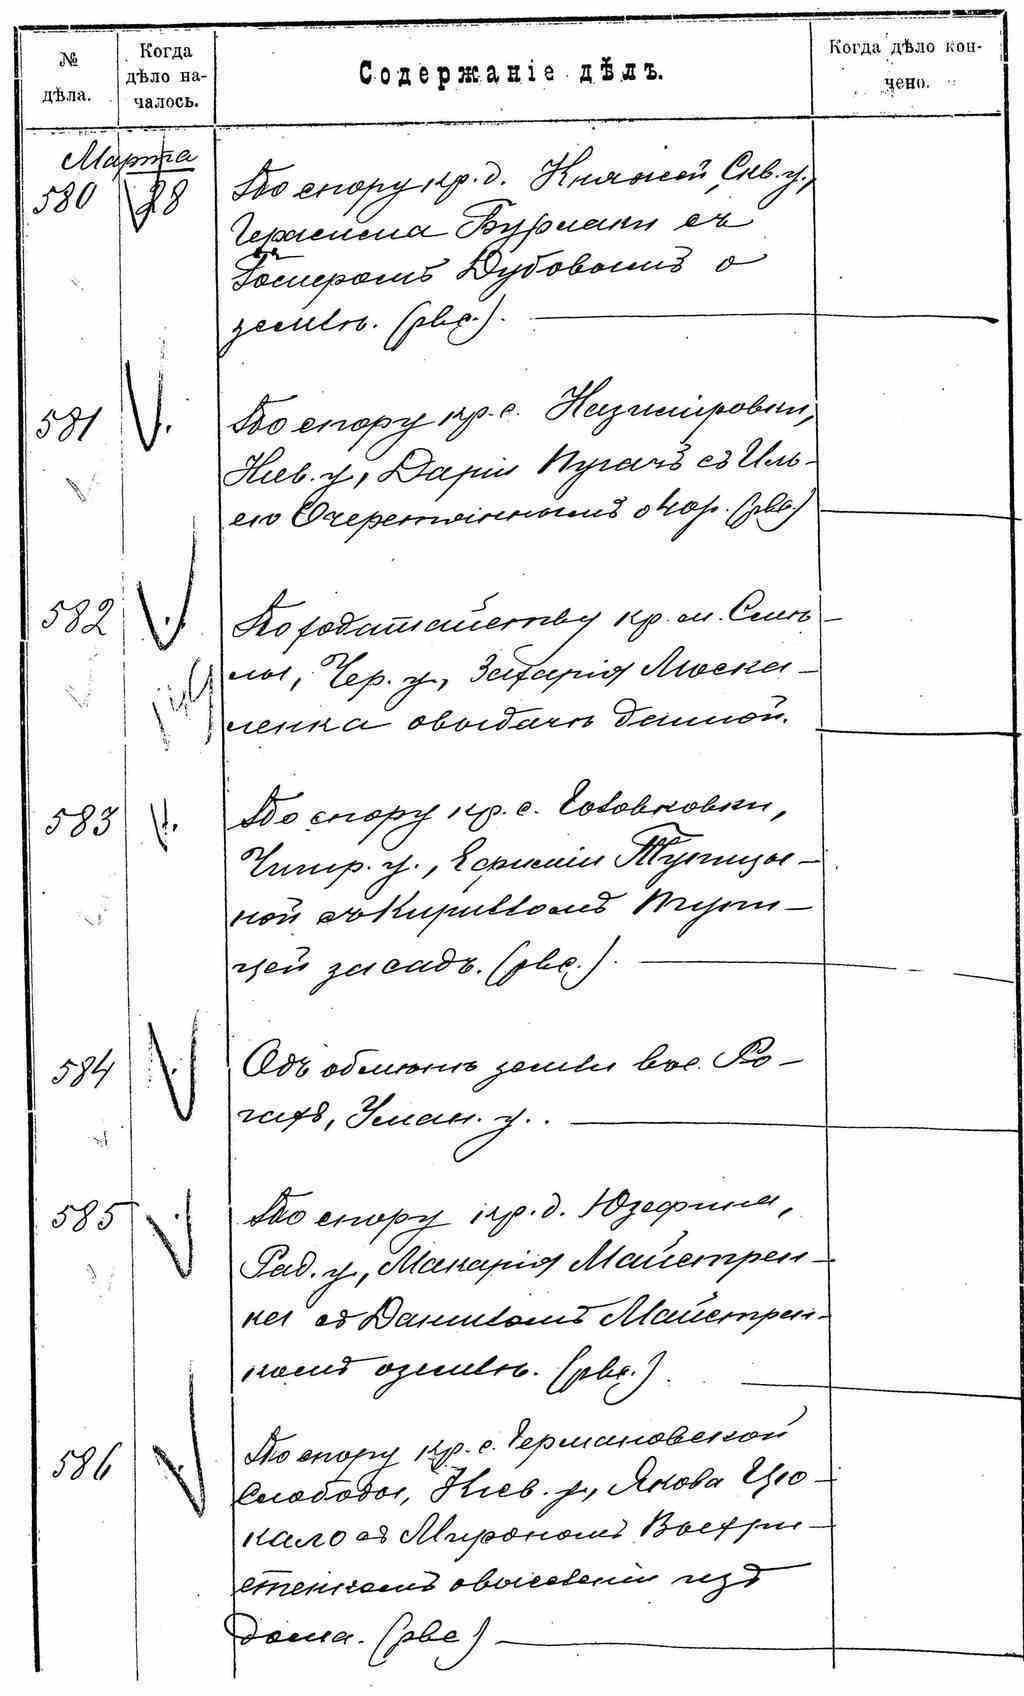 № дѣла.
Когда дѣло началось.
Содержаніе дѣлъ.
Когда дѣло кончено.
Марта
580 28 По спору кр. д. Княжой, Скв. у.,
Герасима Бурлаки съ
Гомеромъ Дубовымъ о
землѣ. (рвс.).
581 По спору кр. с. Казиміровки,
Кіев. у, Даріи Пугачъ съ Иль-
ею Очеретяннымъ о кор. (рвс.)
582 По ходатайству кр. м. Смѣ-
лы, Чер. у, Захарія Моска-
ленка о выдачѣ данной.
583 По спору кр. с. Головковки,
Чигир. у., Ефиміи Тупицы-
ной съ Кирилломъ Тупи-
цей за садъ. (рвс.).
584 Объ обмѣнѣ земли въ с. Ро-
гахъ, Уман. у.
585 По спору кр. д. Юзефина,
Рад. у, Макарія Майстрен-
ка съ Даниломъ Майстрен-
комъ о землѣ. (рвс.).
586 По спору кр. с. Германовской
Слободы, Кіев. у, Якова Цю-
кало съ Мирономъ
о выселеніи изъ
дома. (рвс)